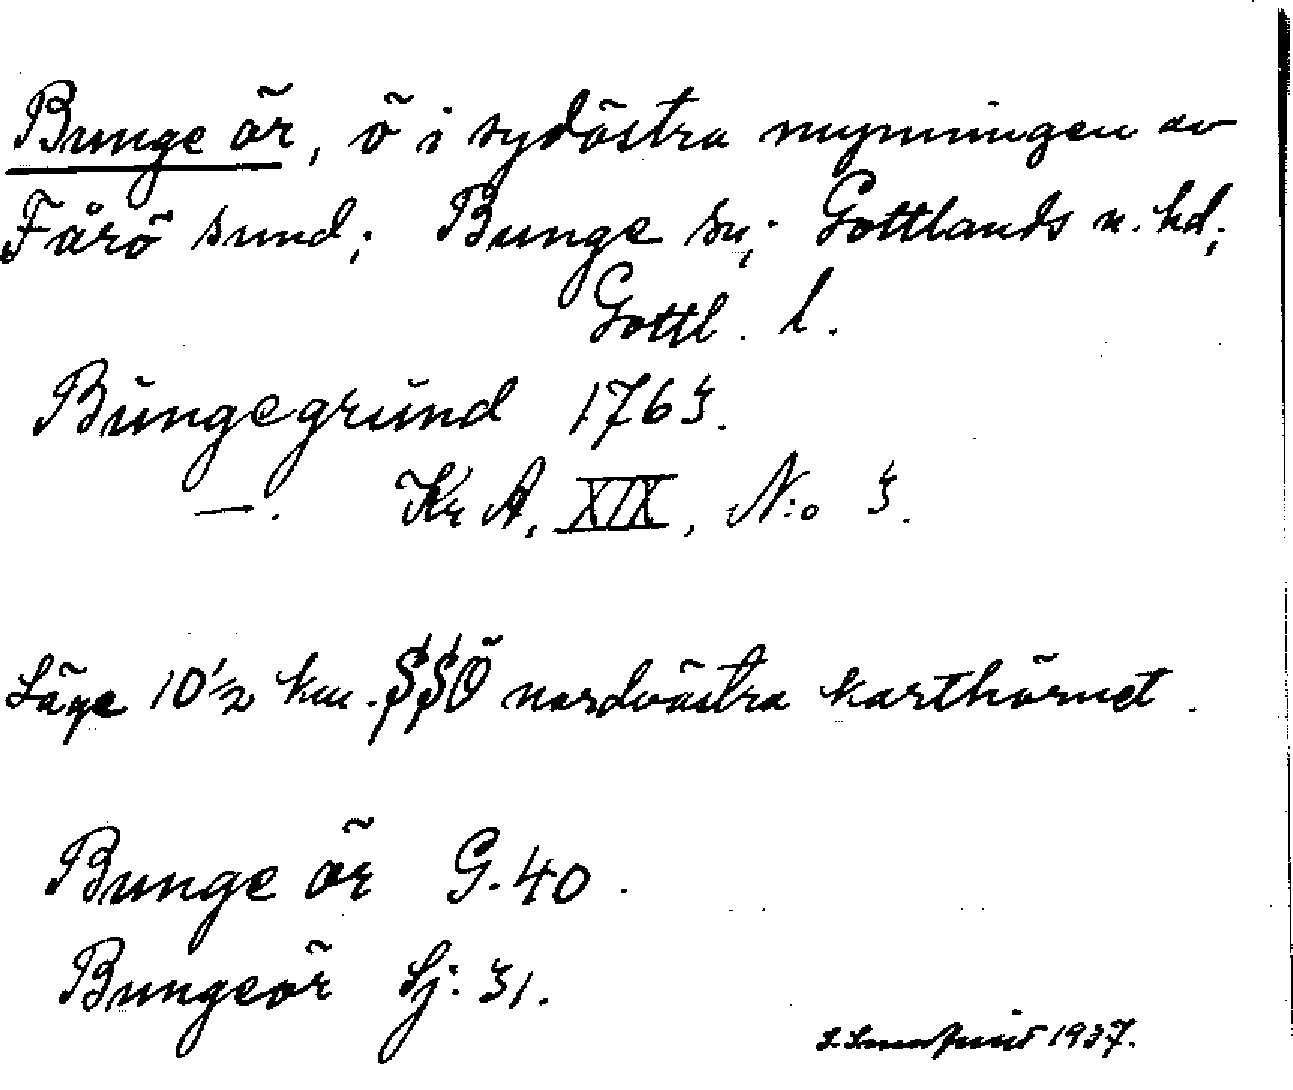 Bunge ör, ö i sydöstra mynningen av
Fårö sund; Bunge sn; Gottlands n. hd;
Gottl. l.
Bŭngegrŭnd 1763.
—. Kr A, XIX, N:o 3.
Läge 10 1/2 km. SSÖ nordvästra karthörnet.
Bunge ör G. 40.
Bungeör Sj: 31.
1937.